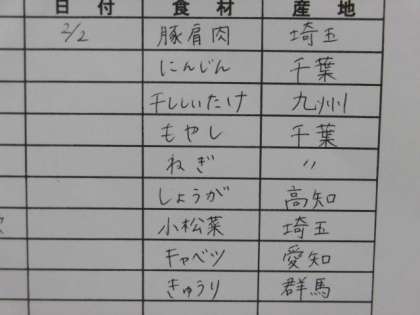 日付 食材 産地
2/2 豚肩肉 埼玉
にんじん 千葉
干ししいたけ 九州
もやし 千葉
ねぎ 〃
しょうが 高知
小松菜 埼玉
キャベツ 愛知
きゅうり 群馬